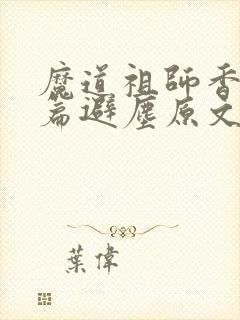 魔道祖師香
篇避塵原文
葉偉